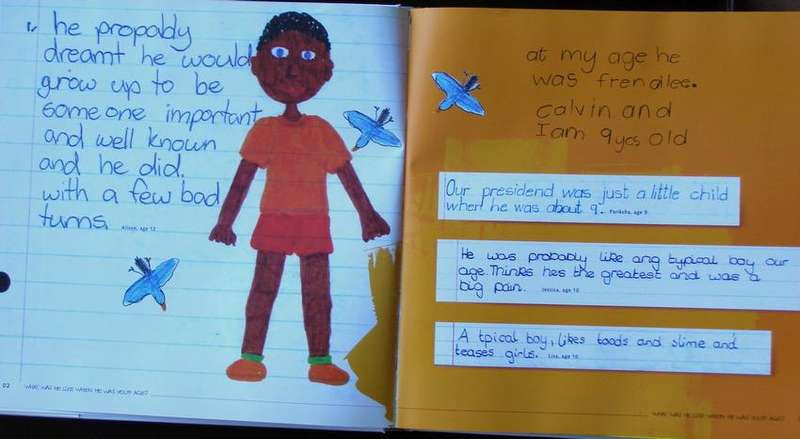 he propobly
dreamt he would
grow up to be
someone important
and well known
and he did.
with a few bad
turns. Alison, age 12
02 WHAT WAS HE LIKE WHEN HE WAS YOUR AGE?
at my age he
was frendlee.
calvin and
I am 9 yes old
Our presidend was just a little child
when he was about 9. age 9
He was probably like ang typical boy our
age. Thinks hes the greatest and was a
big pain. Jessica, age 10
A tpical boy, likes toads and slime and
teases girls. Lisa, age 10
WHAT WAS HE LIKE WHEN HE WAS YOUR AGE?